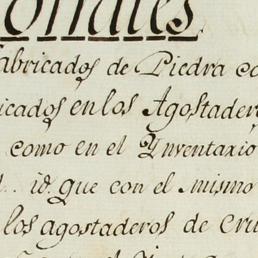 abricados de Piedra co
icados en los Agostader
como en el Ynventaxio
id. que con el mismo
los agostaderos de cru